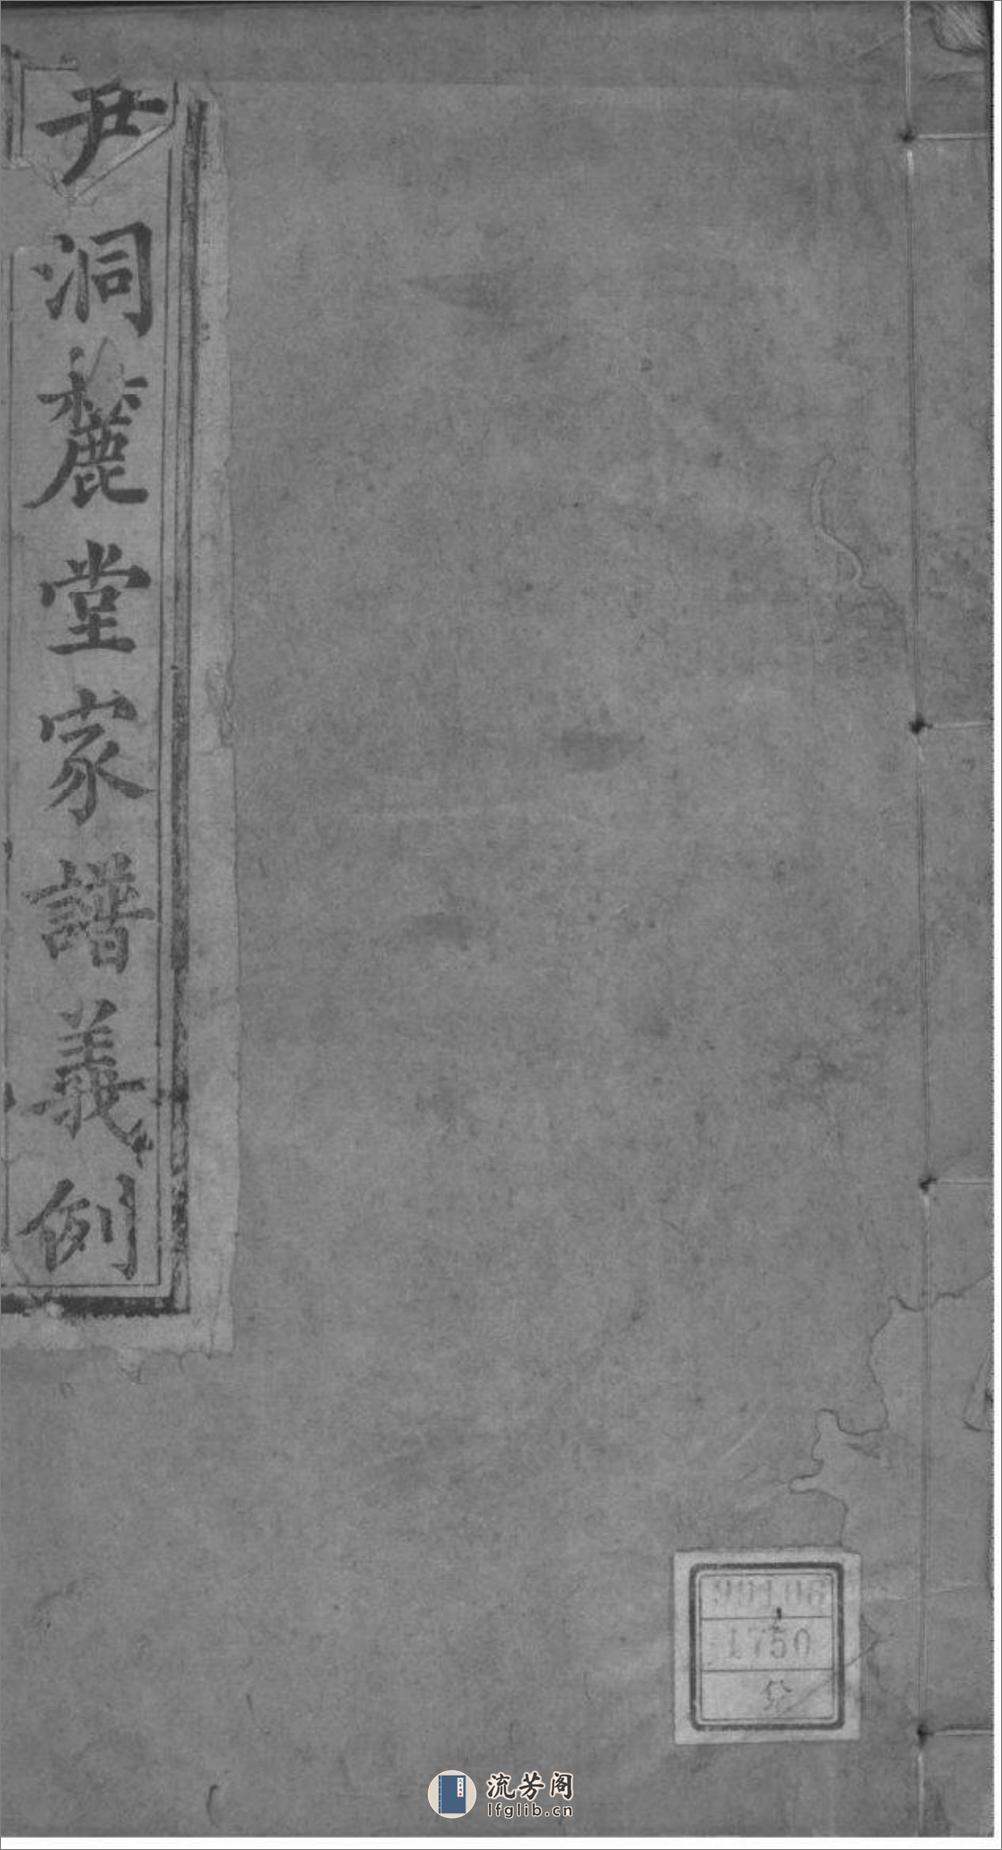 尹洞麓堂家譜義例
99106
1750
流芳阁
lfglib.cn